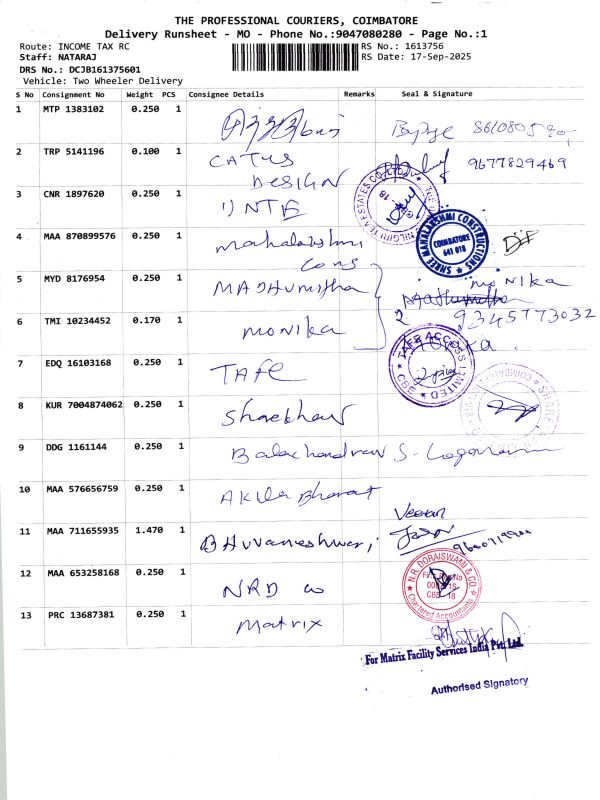 THE PROFESSIONAL COURIERS, COIMBATORE
Delivery Runsheet - MO - Phone No.:9047080280 - Page No.:1
Route: INCOME TAX RC
RS No.: 1613756
Staff: NATARAJ
RS Date: 17-Sep-2025
DRS No.: DCJB161375601
Vehicle: Two Wheeler Delivery
S No Consignment No Weight PCS Consignee Details Remarks Seal & Signature
1 MTP 1383102 0.250 1
2 TRP 5141196 0.100 1 CATUS DESIGN 9677829469
3 CNR 1897620 0.250 1 INTE
4 MAA 870899576 0.250 1 mahalakshmi Cons
SHREE MAHALAKSHMI CONSTRUCTIONS
COIMBATORE
641 018
5 MYD 8176954 0.250 1 MADHumitha moNIka
6 TMI 10234452 0.170 1 moNika 9345773032
7 EDQ 16103168 0.250 1 TAFE
TAFE ACCESS LIMITED
CBE
8 KUR 7004874062 0.250 1
9 DDG 1161144 0.250 1 Balachandran S.
10 MAA 576656759 0.250 1 AKila Bharat
Veeran
11 MAA 711655935 1.470 1 BHuvaneshwari
12 MAA 653258168 0.250 1 NRD co
N.R. DORAISWAMI & CO.
Chartered Accountants
13 PRC 13687381 0.250 1 matrix
For Matrix Facility Services India Pvt. Ltd.
Authorised Signatory